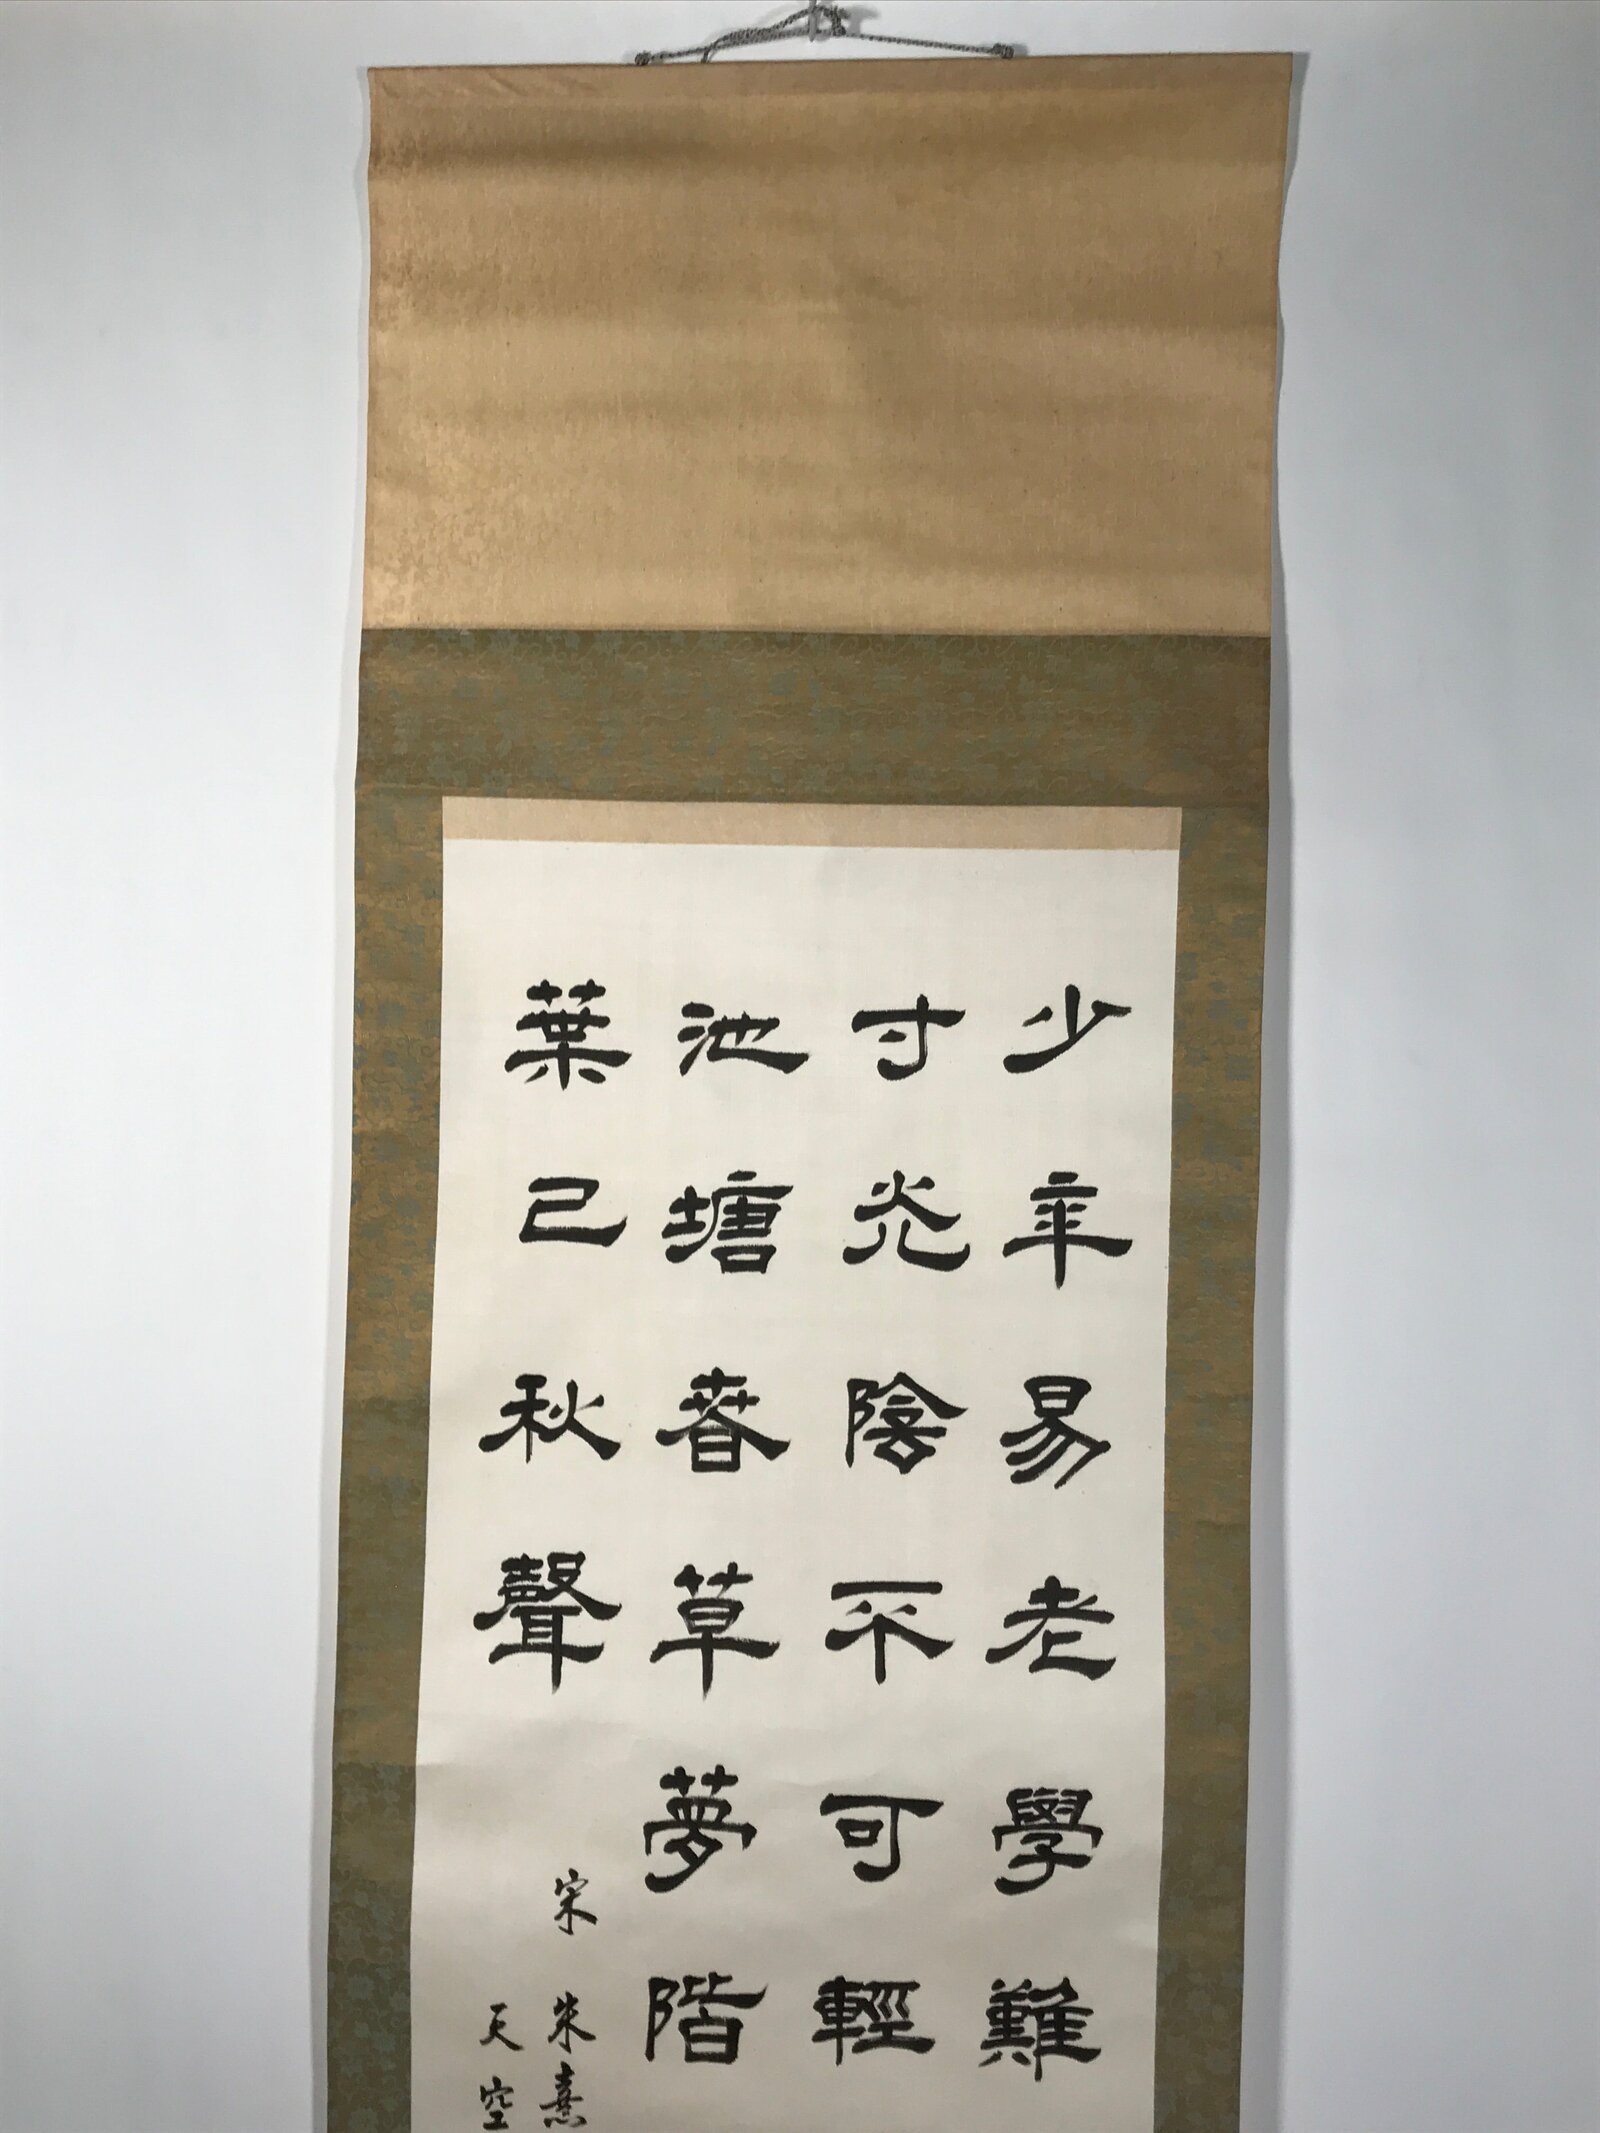 少年易老學難
寸光陰不可輕
池塘春草夢階
葉已秋聲
宋朱熹
天空